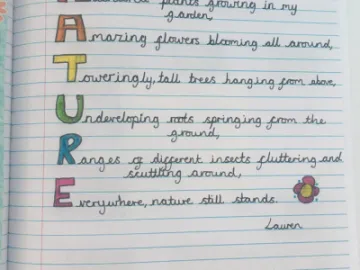 plants growing in my
garden,
Amazing flowers blooming all around,
Toweringly, tall trees hanging from above,
Undeveloping roots springing from the
ground,
Ranges of different insects fluttering and
scuttling around,
Everywhere, nature still stands.
Lauren